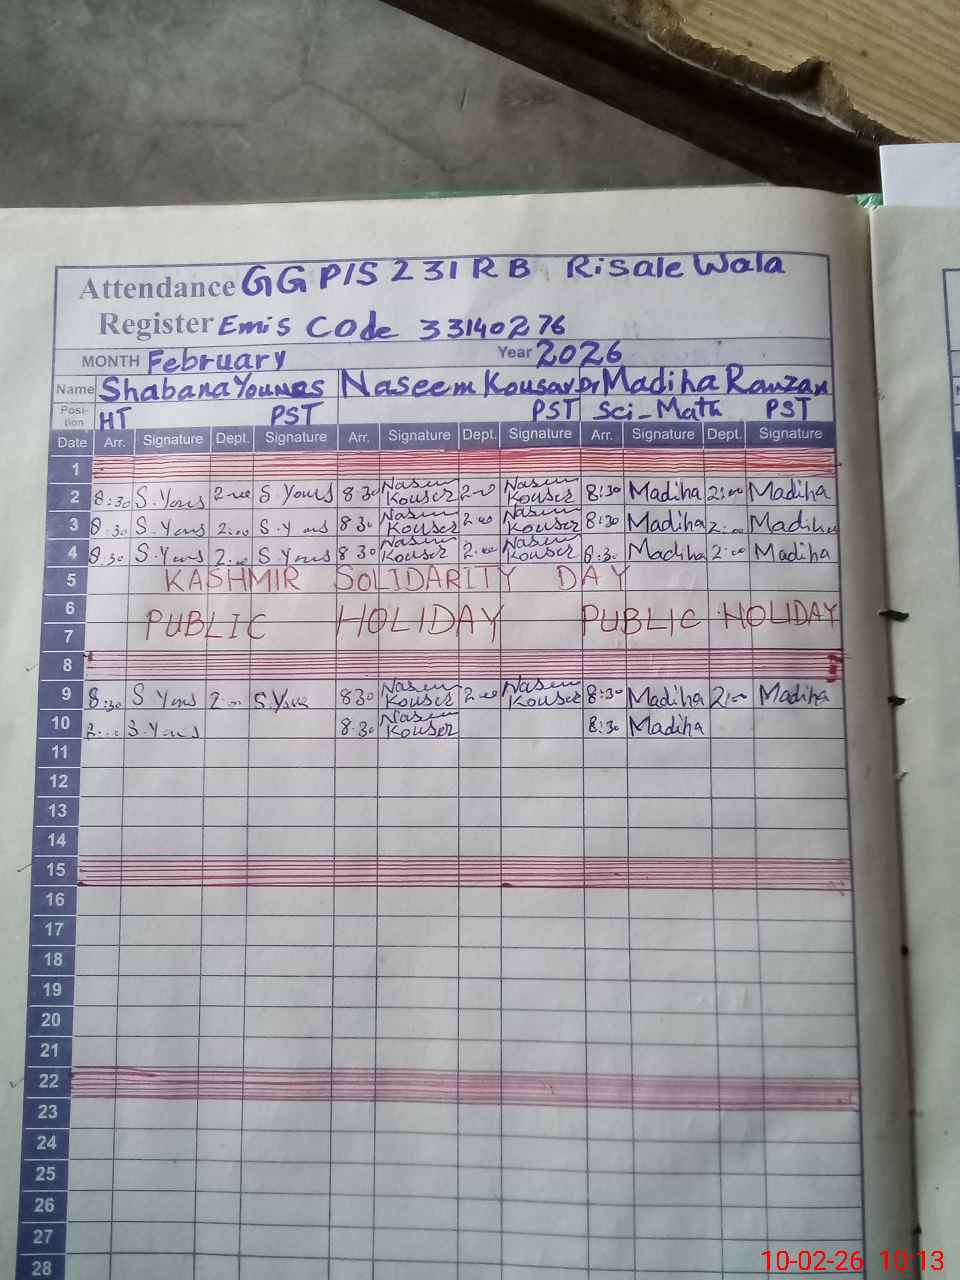 Attendance GG P/S 231 R B Risale Wala
Register Emis Code 33140276
MONTH February Year 2026
Name Shabana Younas Naseem Kousar Madiha Ramzan
Position HT PST PST Sci-Math PST
Date Arr. Signature Dept. Signature Arr. Signature Dept. Signature Arr. Signature Dept. Signature
1
2 8:30 S.Yous 2:00 S.Yous 8 30 Nasem Kouser 2:00 Nasem Kouser 8:30 Madiha 2:00 Madiha
3 8:30 S.Yous 2:00 S.Yous 8 30 Nasem Kouser 2:00 Nasem Kouser 8:30 Madiha 2:00 Madiha
4 8:30 S.Yous 2:00 S.Yous 8 30 Nasem Kouser 2:00 Nasem Kouser 8:30 Madiha 2:00 Madiha
5 KASHMIR SOLIDARITY DAY
6 PUBLIC HOLIDAY PUBLIC HOLIDAY
7
8
9 8:30 S.Yous 2:00 S.Yous 8 30 Nasem Kouser 2:00 Nasem Kouser 8:30 Madiha 2:00 Madiha
10 S.Yous 8:30 Nasem Kouser 8:30 Madiha
11
12
13
14
15
16
17
18
19
20
21
22
23
24
25
26
27
28
10-02-26 10:13